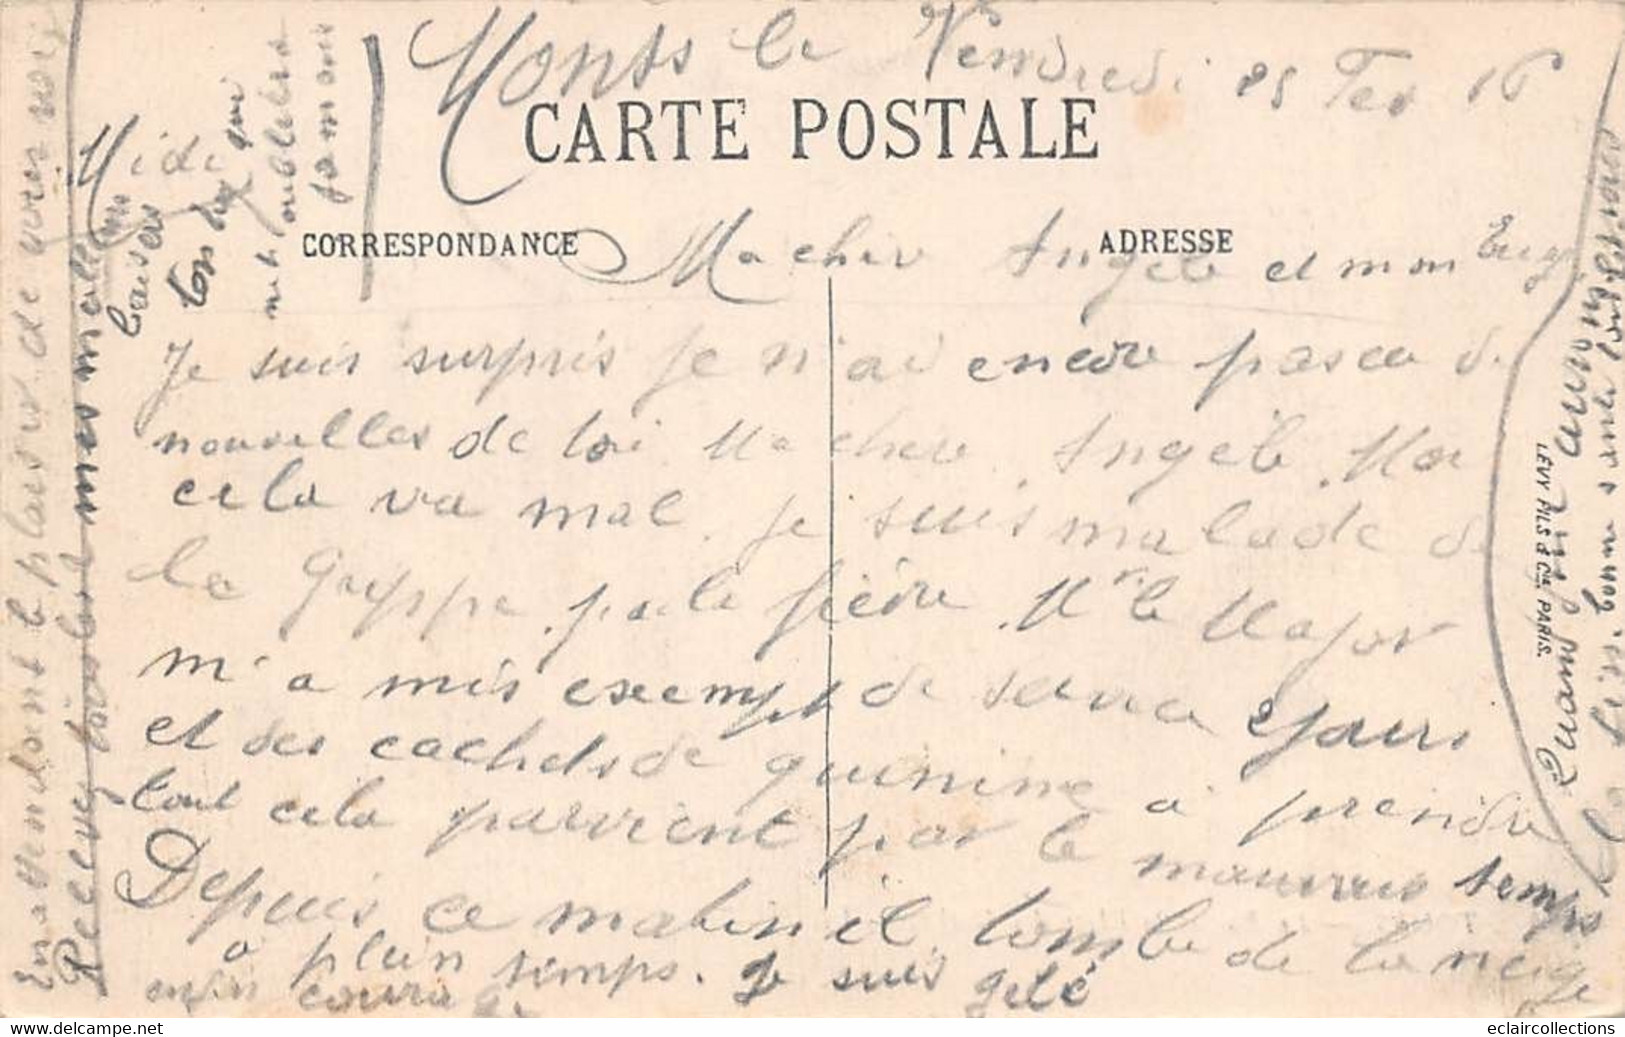 Monts le Vendredi 25 Fev 16
CARTE POSTALE
Midi
CORRESPONDANCE
ADRESSE
Ma cher Angèle et mon
Je suis surpris je n'ai encore pas eu de
nouvelles de toi Ma chere Angèle. Moi
cela va mal. Je suis malade de
la Grippe par la fièvre. Mr le Major
m'a mis exempt de service 2 jours
et des cachets de quinine à prendre
tout cela parvient par le mauvais temps
Depuis ce matin il tombe de la neige
à plein temps. Je suis gelé
enfin courage.
En attendant le plaisir de
Recevez mes meilleurs
baisers
ton qui
oubliera
jamais
Quand
LEVY FILS & Cie PARIS.
eclaircollections